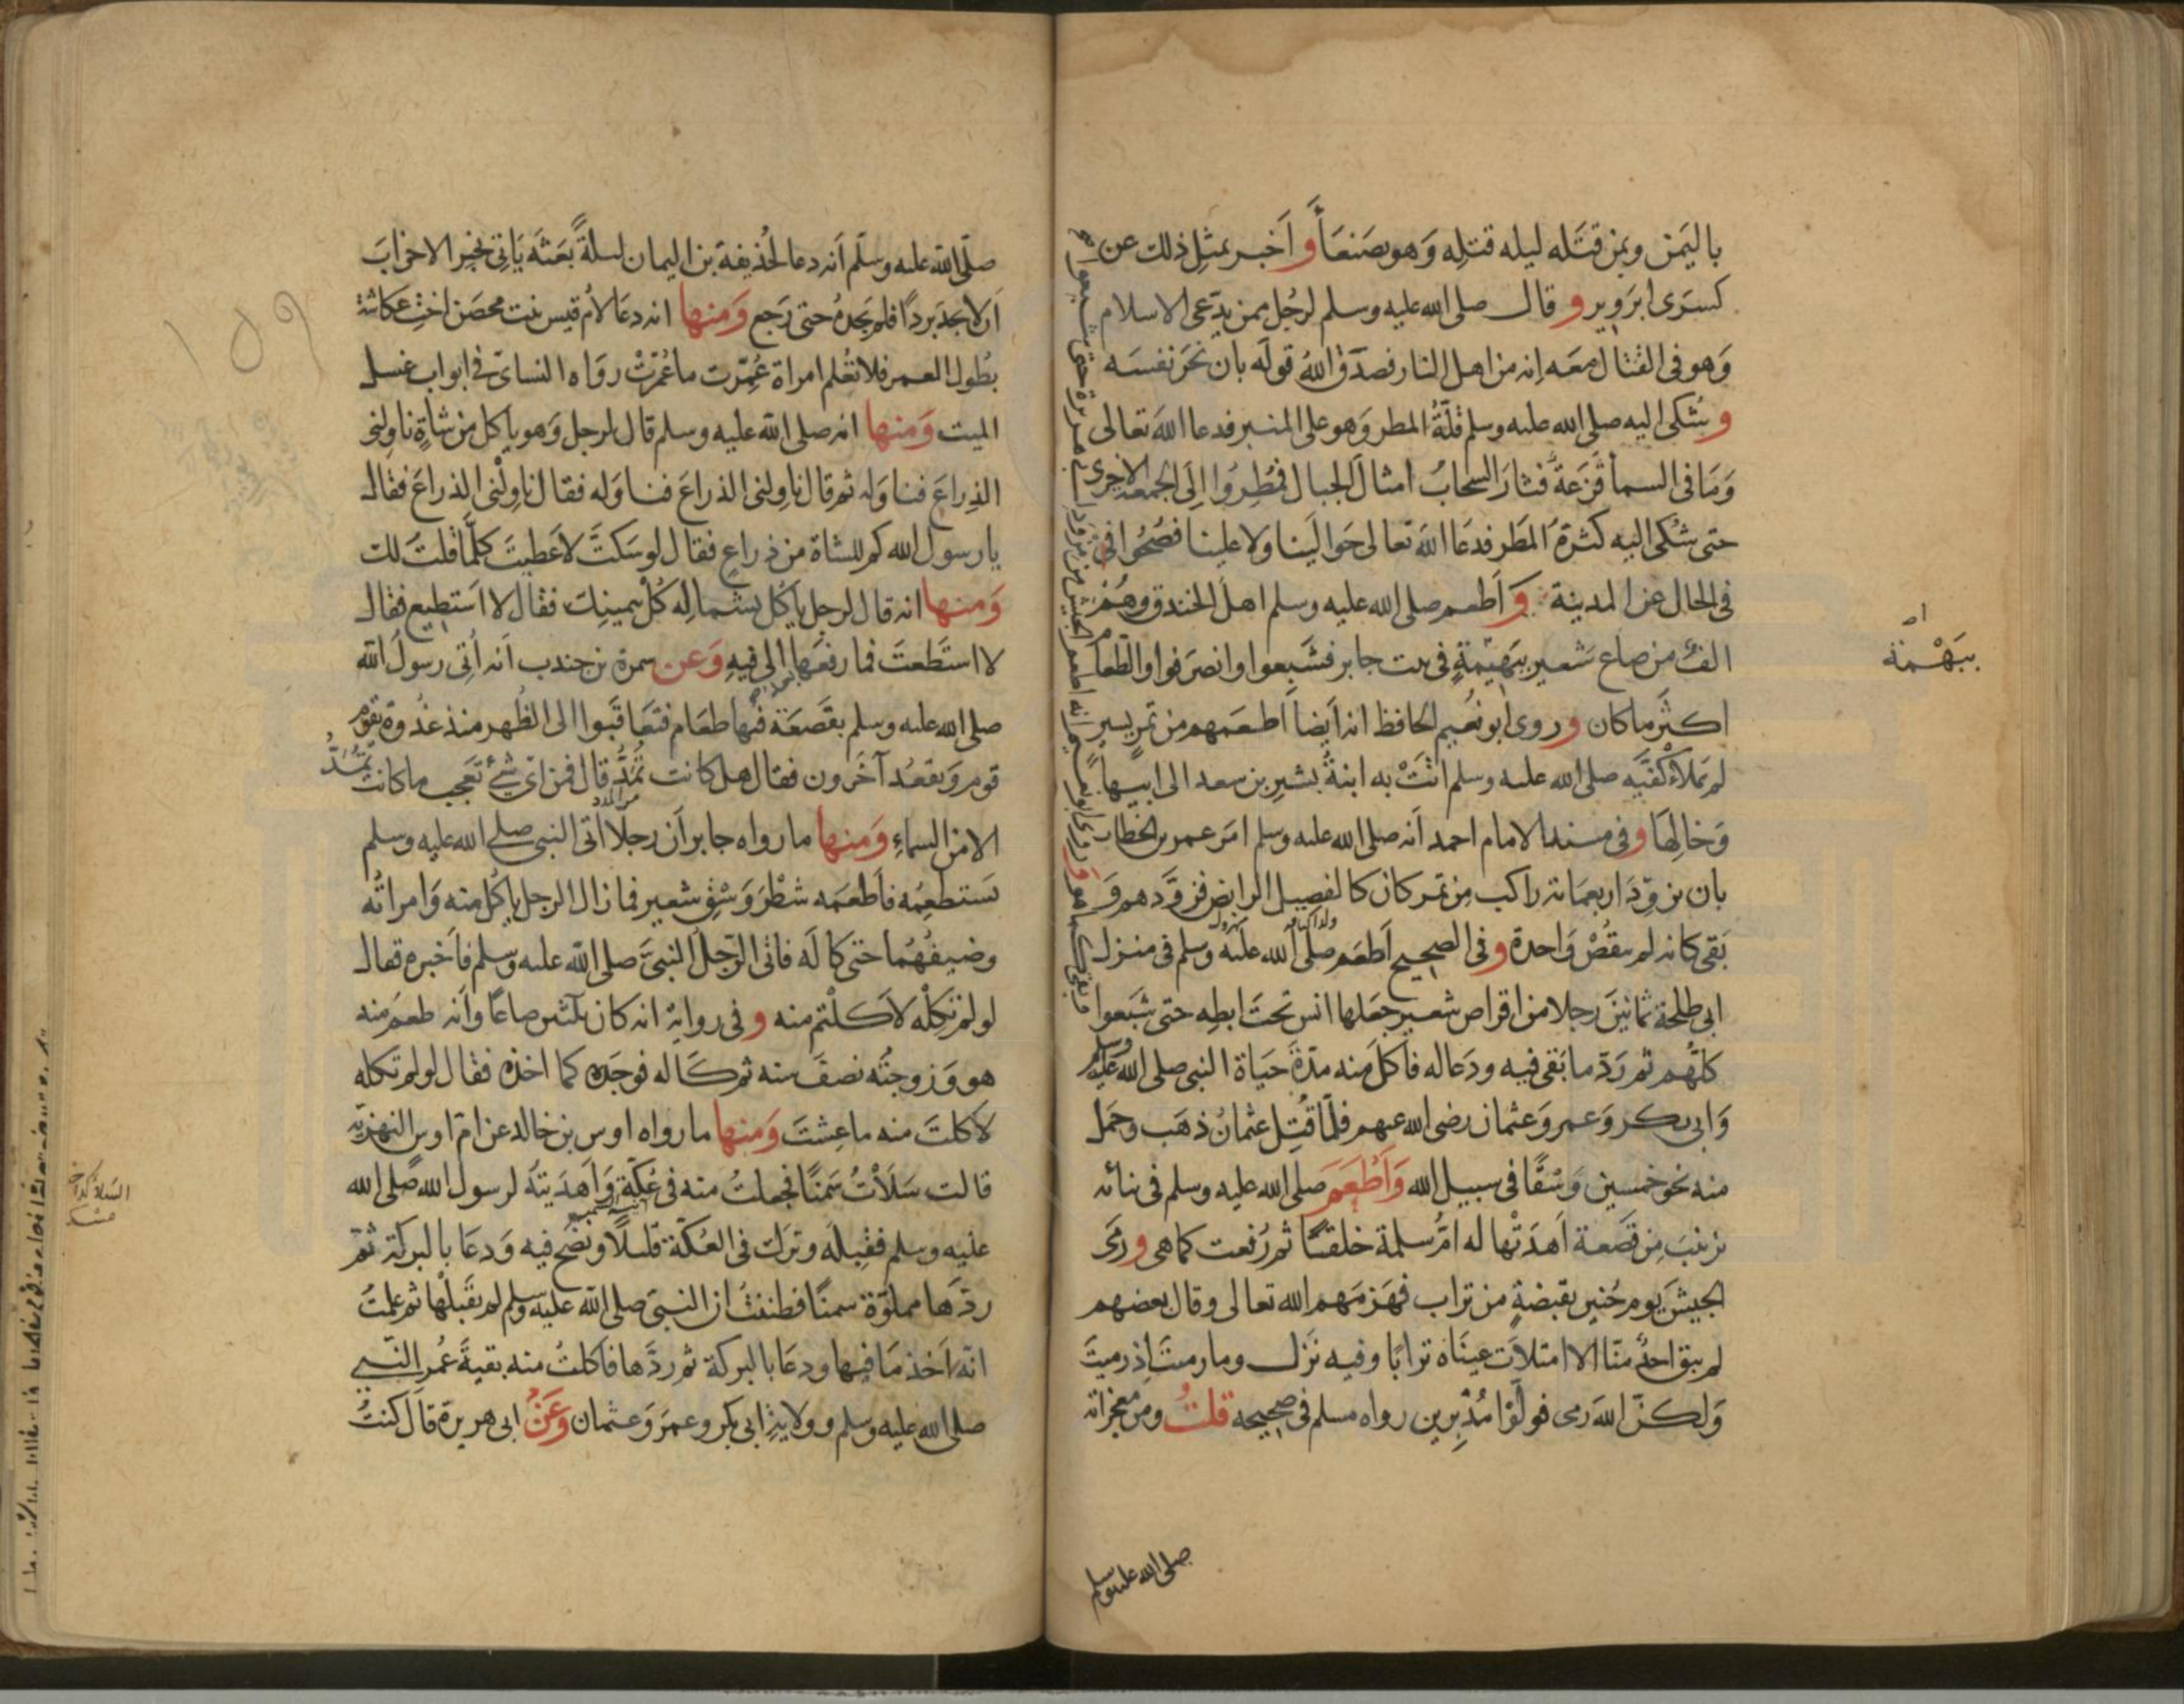 باليَمن وبمن قتَله ليله قتلِه وَهو بصَنعَأ وأَخبر بمثِل ذلك عن
كسرَى ابرَوِيز وقال صلى الله عليه وسلم لرجُل ممن يدّعى الاسلام
وَهو فى القتال معَه إنه من اهل النار فصدّق اللهُ قولَه بان نحَر نفسَه
وشُكى اليه صلى الله عليه وسلم قلّةُ المطر وَهو على المنبر فدعا اللهَ تعالى
وَمَا فى السمأ قَزَعةٌ فثارَ السَّحابُ امثال الجبال فمُطِرُوا إلَى الجمعة الاخرى
حتى شُكى اليه كثرةُ المَطر فدعَا اللهَ تعالى حَوالَينا ولا علينا فصَحُوا فى
فى الحال عن المدينة وأَطعم صلى الله عليه وسلم اهلَ الخندق وهُم
الفٌ من صاع شعير وبَهيمَةٍ فى بيت جابر فشَبعوا وانصرَفوا والطّعامُ
اكثَر ما كان وروى ابو نعُيم الحافظ انه اَيضاً اَطعَمهم من تمرٍ يسير
لم يَملأ كفّيَه صلى الله عليه وسلم اتَتْ به ابنةُ بشيرِ بن سعد الى ابيها
وَخالِهَا وفى مسند الامام احمد اَنه صلى الله عليه وسلم امَر عمر بن الخطاب
بان يزوِّدَ اربعمَائة راكب مِن تمر كان كالفصِيل الرابض فزوَّدهم وَ
بَقى كانه لم ينقُصْ وَاحدة وفى الصحيح اَطعَم صلى الله علَيه وسلم فى منزل
ابى طلحة ثمانينَ رجلا من اقراص شعير جعَلها انس تحتَ ابطِه حتى شبَعوا
كلّهُم ثم رَدّ ما بَقى فيه ودَعا له فاَكلَ منه مدّةَ حَيَاة النبى صلى الله عَليه وسلم
وَابى بكر وَعمر وَعثمان رضى الله عنهم فلمّا قُتِل عثمانُ ذهَب وحمَل
منه نحو خمسين وَسْقًا فى سبيل الله وَأَطْعَمَ صلى الله عليه وسلم فى بنائه
بزينبَ مِن قصَعة اَهدَتْها له امُّ سلمة خلقًا ثم رُفعت كما هى ورمَى
الجيشَ يَوم حُنين بقبضةٍ من تراب فهَزمَهم الله تعالى وقال بعضهم
لم يبق احدٌ منّا الا امتلأت عينَاه ترابًا وفيه نَزل وما رميتَ اِذ رميتَ
وَلكنّ اللهَ رمى فولَّوْا مُدْبِرين رواه مسلم فى صحيحه قلتُ ومن معجزاته
بِبَهْمة
صلى الله عليه وسلم
صلّى الله عليه وسلّم اَنه دعا لحُذيفة بن اليمان ليلةً بعَثَه يَاتى بخبر الاحزابَ
اَن لا يجدَ برداً فلم يَجدهُ حتى رَجع وَمنها انه دعَا لاُم قيس بنت محصَن اختِ عكاشة
بطُول العمر فلا تعُلم امراة عُمِّرت ما عُمّرتْ روَاه النساى فى ابواب غسل
الميت وَمنها انه صلى الله عليه وسلم قال لرجل وَهو ياكل من شاةٍ ناوِلنى
الذِراعَ فناوَله ثم قال ناوِلنى الذراعَ فناوَله فقال ناوِلْنى الذراعَ فقال
يا رسول الله كم للشاة من ذراعٍ فقال لو سَكتَّ لاَعطيتَ كلَّما قلتَ لك
وَمنها انه قال لرجل يأكل بشماله كُل بيمينِك فقال لا اَستطيع فقال
لا استَطعتَ فما رفعَها الى فيهِ وَعن سمرة بن جندب اَنه اُتى رسولُ الله
صلى الله عليه وسلم بقَصعَة فيها طعَام فتعَاقَبوا الى الظُهر منذ غدُوة يقوُم
قوم وَيقعُد آخَرون فقال هل كانت تُمَدُّ قال فمن اىّ شئٍ تعَجب ما كانت تُمَدُّ
الا من السماءِ وَمنها ما رواه جابر اَن رجلا اتى النبى صلى الله عليه وسلم
يَستطعِمُه فاَطعَمَه شطْرَ وَسْقِ شعير فما زال الرجل ياكُل منه وَامراتُه
وضيفُهُما حتى كالَه فاتى الرّجل النبىَّ صلى الله عليه وسلم فأَخبره فقال
لو لم تكِلْه لاَكلْتم منه وفى روايةٍ انه كان ثلثين صاعًا واَنه طعمَ منه
هو وَزوجتُه نصفَ سنه ثم كَاله فوجدَه كما اخذه فقال لو لم تكله
لاَكلتَ منه ما عِشتَ وَمنها ما رواه اوس بن خالد عن امّ اوس البهزية
قالت سَلأتُ سَمنًا فجعلتُ منه فى عُكّةٍ وَاَهدَيتُه لرسول الله صلى الله
عليه وسلم فقبِلَه وترَك فى العُكّة قليلًا ونفخ فيه وَدعَا بالبركة ثمّ
ردّهَا مملوّة سمنًا فظننتُ ان النبىّ صلى الله عليه وسلم لم يقبَلْها ثم علمتُ
انه اَخذ مَا فيها ودعَا بالبركة ثم ردَّها فاكلتُ منه بقيةَ عُمر النّبى
صلى الله عليه وسلم وولايةِ ابى بكر وعمرَ وَعثمان وَعَنْ ابى هريرة قال كنتُ
١٥٩